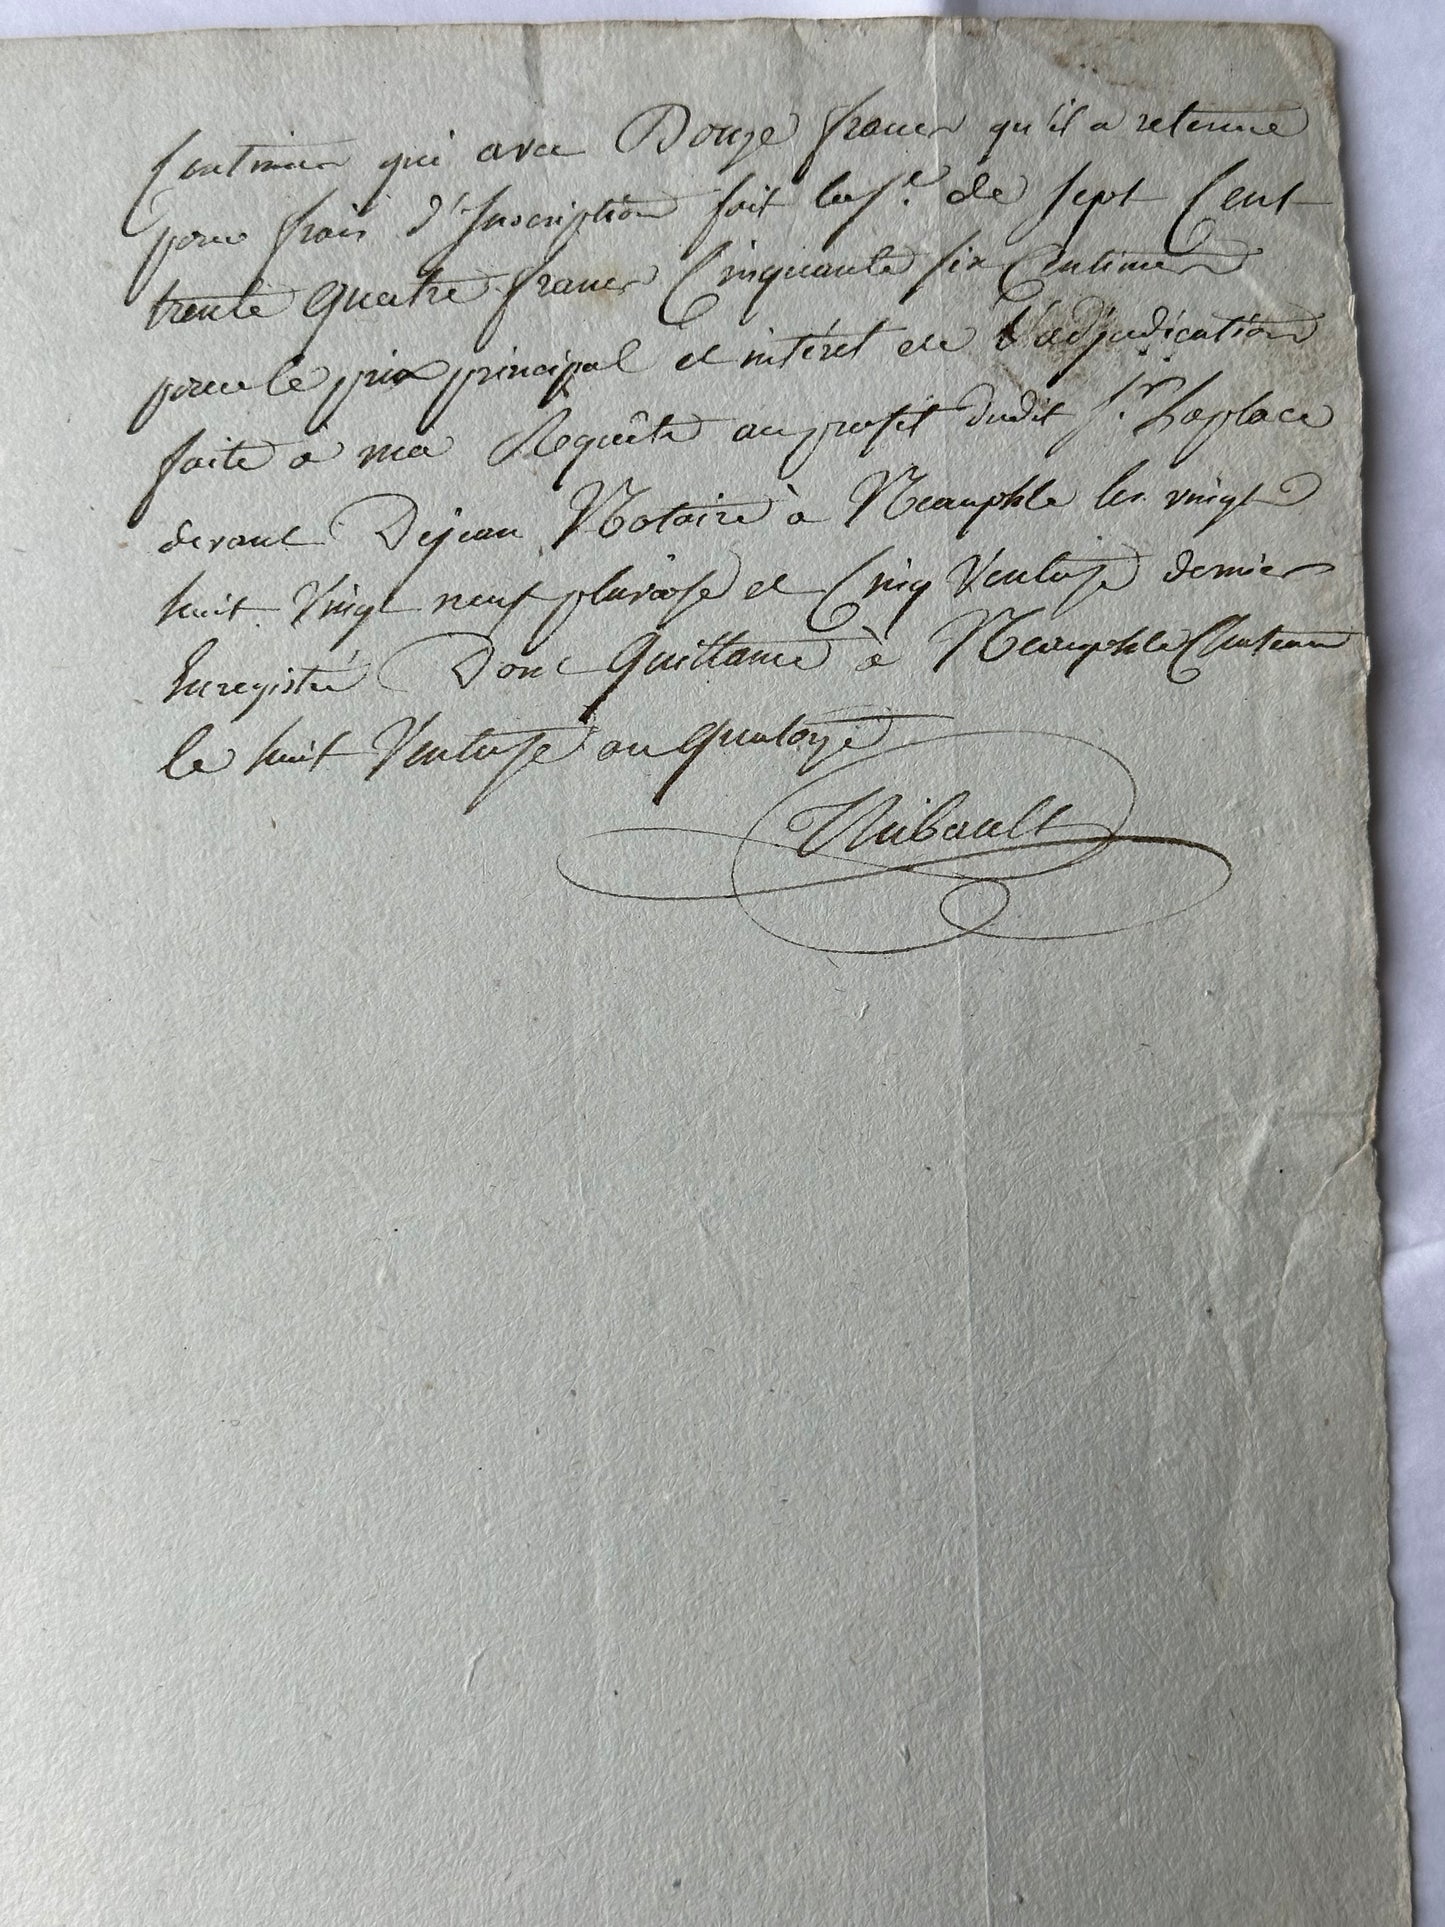 Centimes qui avec Douze francs qu'il a retenue
pour frais d'Inscription fait la s.e de sept Cent
trente quatre francs Cinquante six Centimes
pour le prix principal et intéret de l'adjudication
faite à ma Requête au profit dudit S.r Laplace
devant Dejean Notaire à Neauphle les vingt
huit Vingt neuf pluviose et Cinq Ventose dernier
Enregistré Dont Quittance à Neauphle Chateau
le huit Ventose an quatorze
Thibault